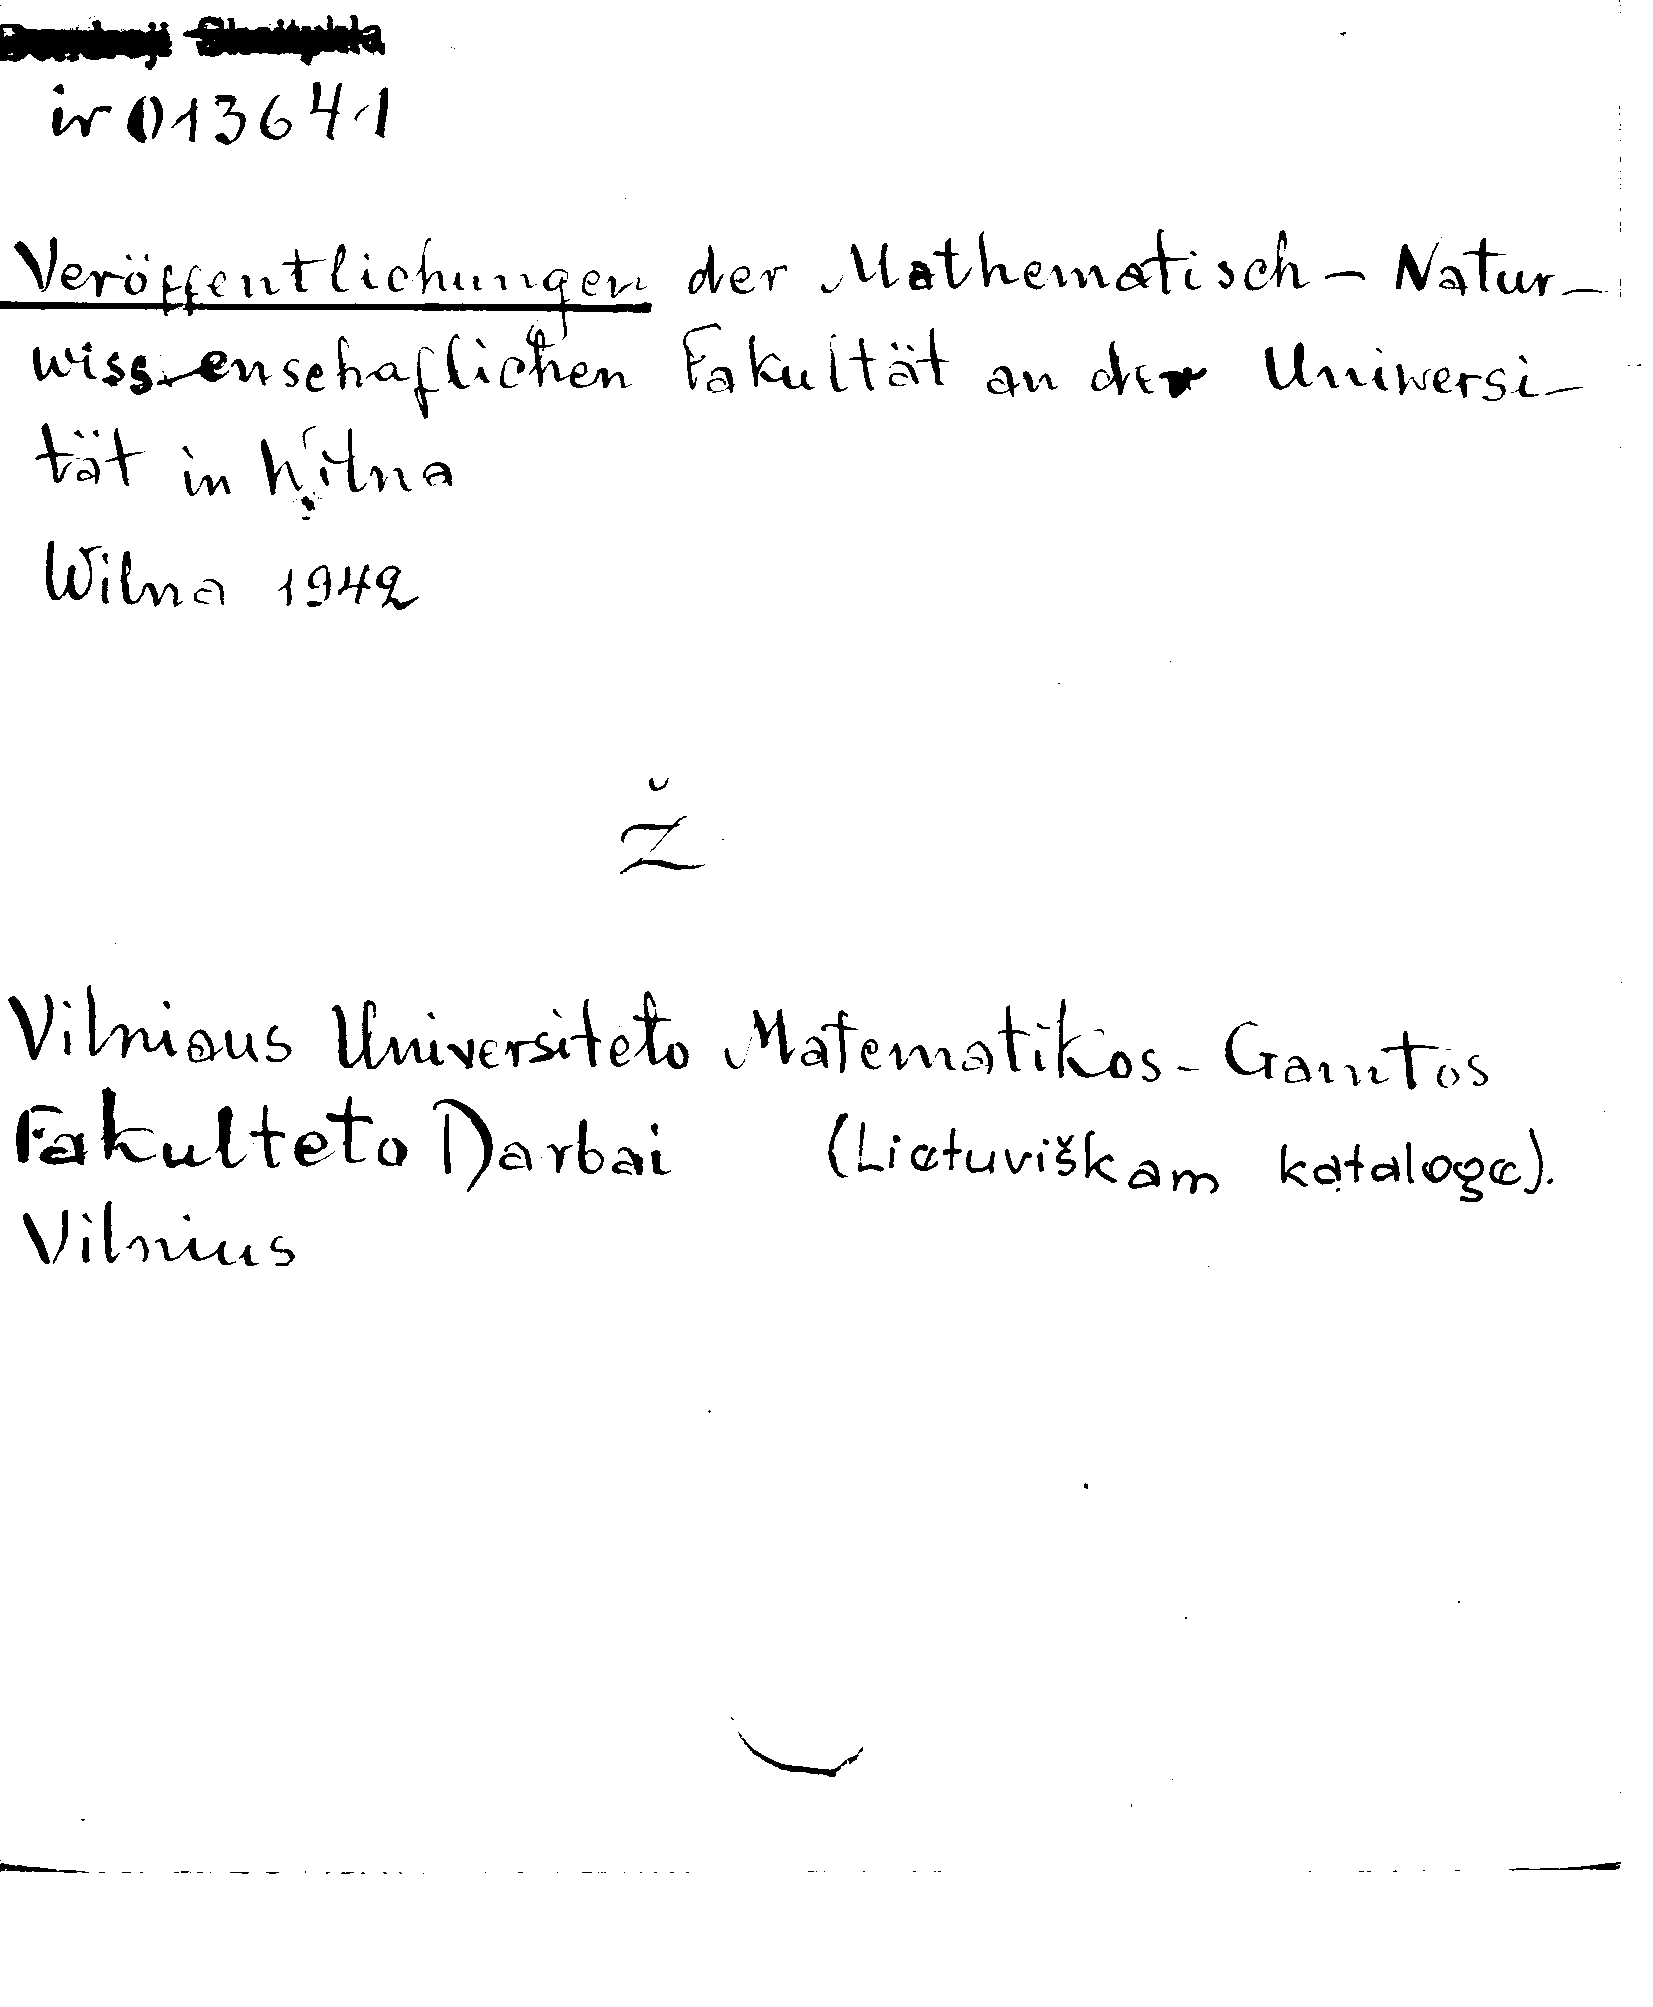 Bendroji Skaitykla
ir 013641
Veröffentlichungen der Mathematisch - Natur-
wissenschaflichen Fakultät an der Uniwersi-
tät in Wilna
Wilna 1942
ž
Vilniaus Universiteto Matematikos - Gamtos
Fakulteto Darbai (Lietuviškam kataloge).
Vilnius